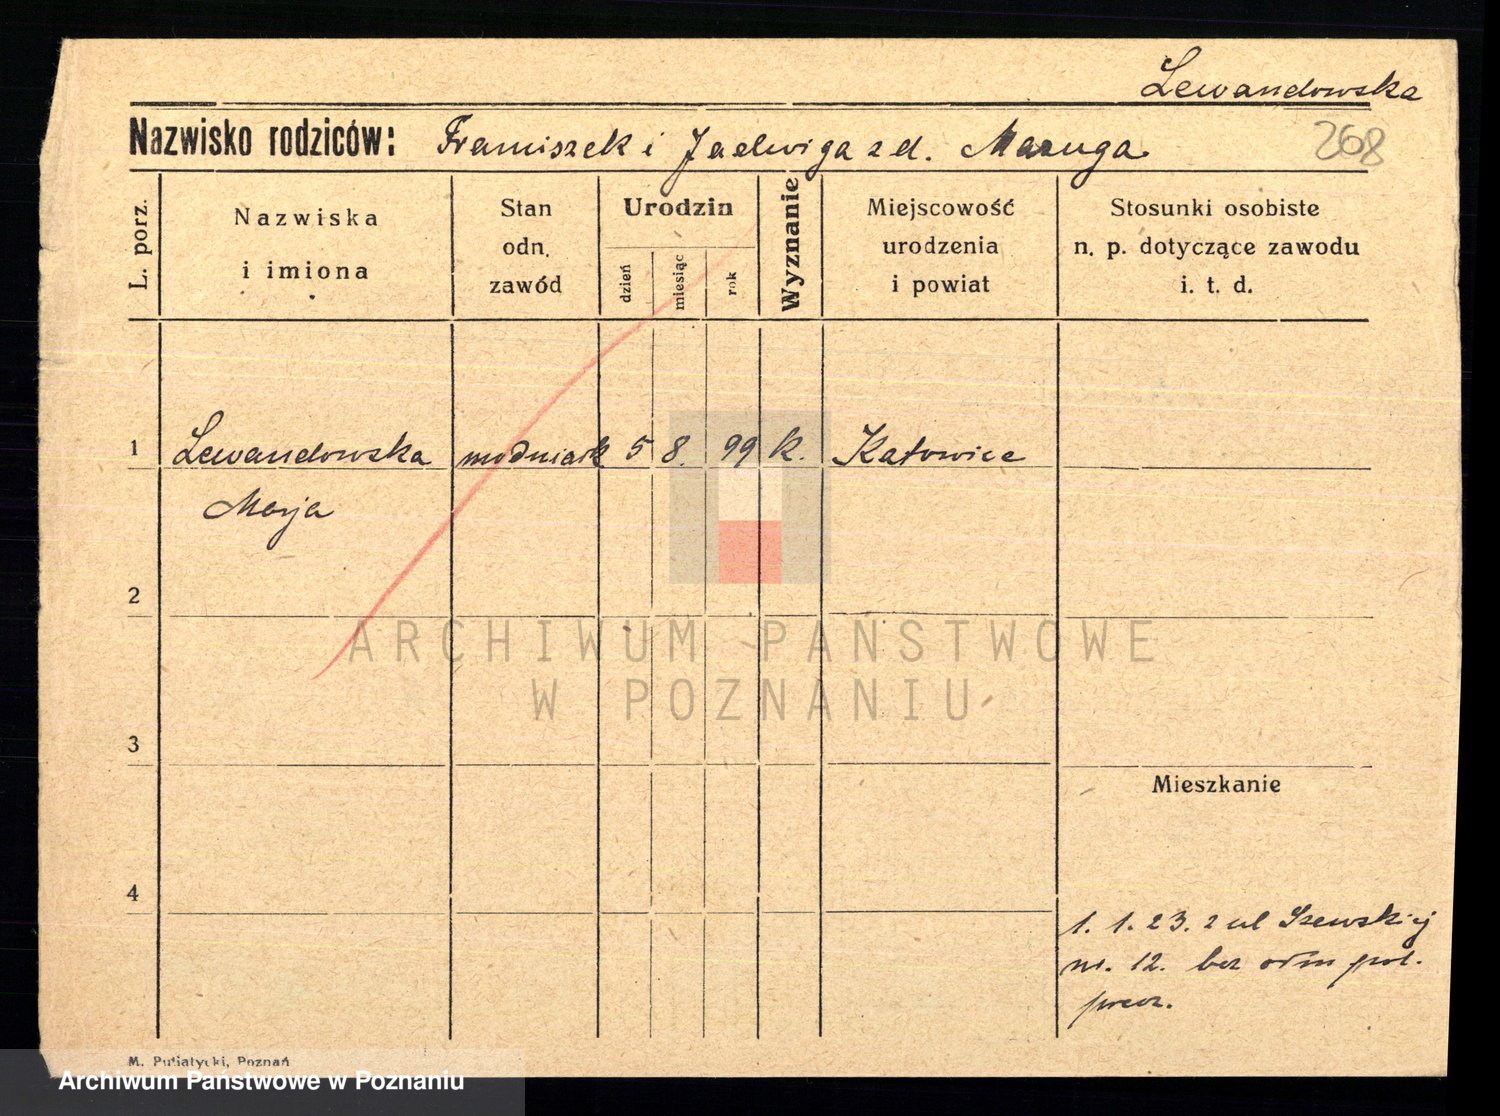 Lewandowska
Nazwisko rodziców: Franciszek i Jadwiga z d. Maruga
268
L. porz.
Nazwiska
i imiona
Stan
odn.
zawód
Urodzin
dzień
miesiąc
rok
Wyznanie
Miejscowość
urodzenia
i powiat
Stosunki osobiste
n. p. dotyczące zawodu
i. t. d.
1 Lewandowska modniark 5 8. 99 k. Katowice
Marja
2
3
4
Mieszkanie
1. 1. 23. z ul Szewskiej
nr. 12. bez odm pol.
M. Putiatycki, Poznań
ARCHIWUM PAŃSTWOWE
W POZNANIU
Archiwum Państwowe w Poznaniu